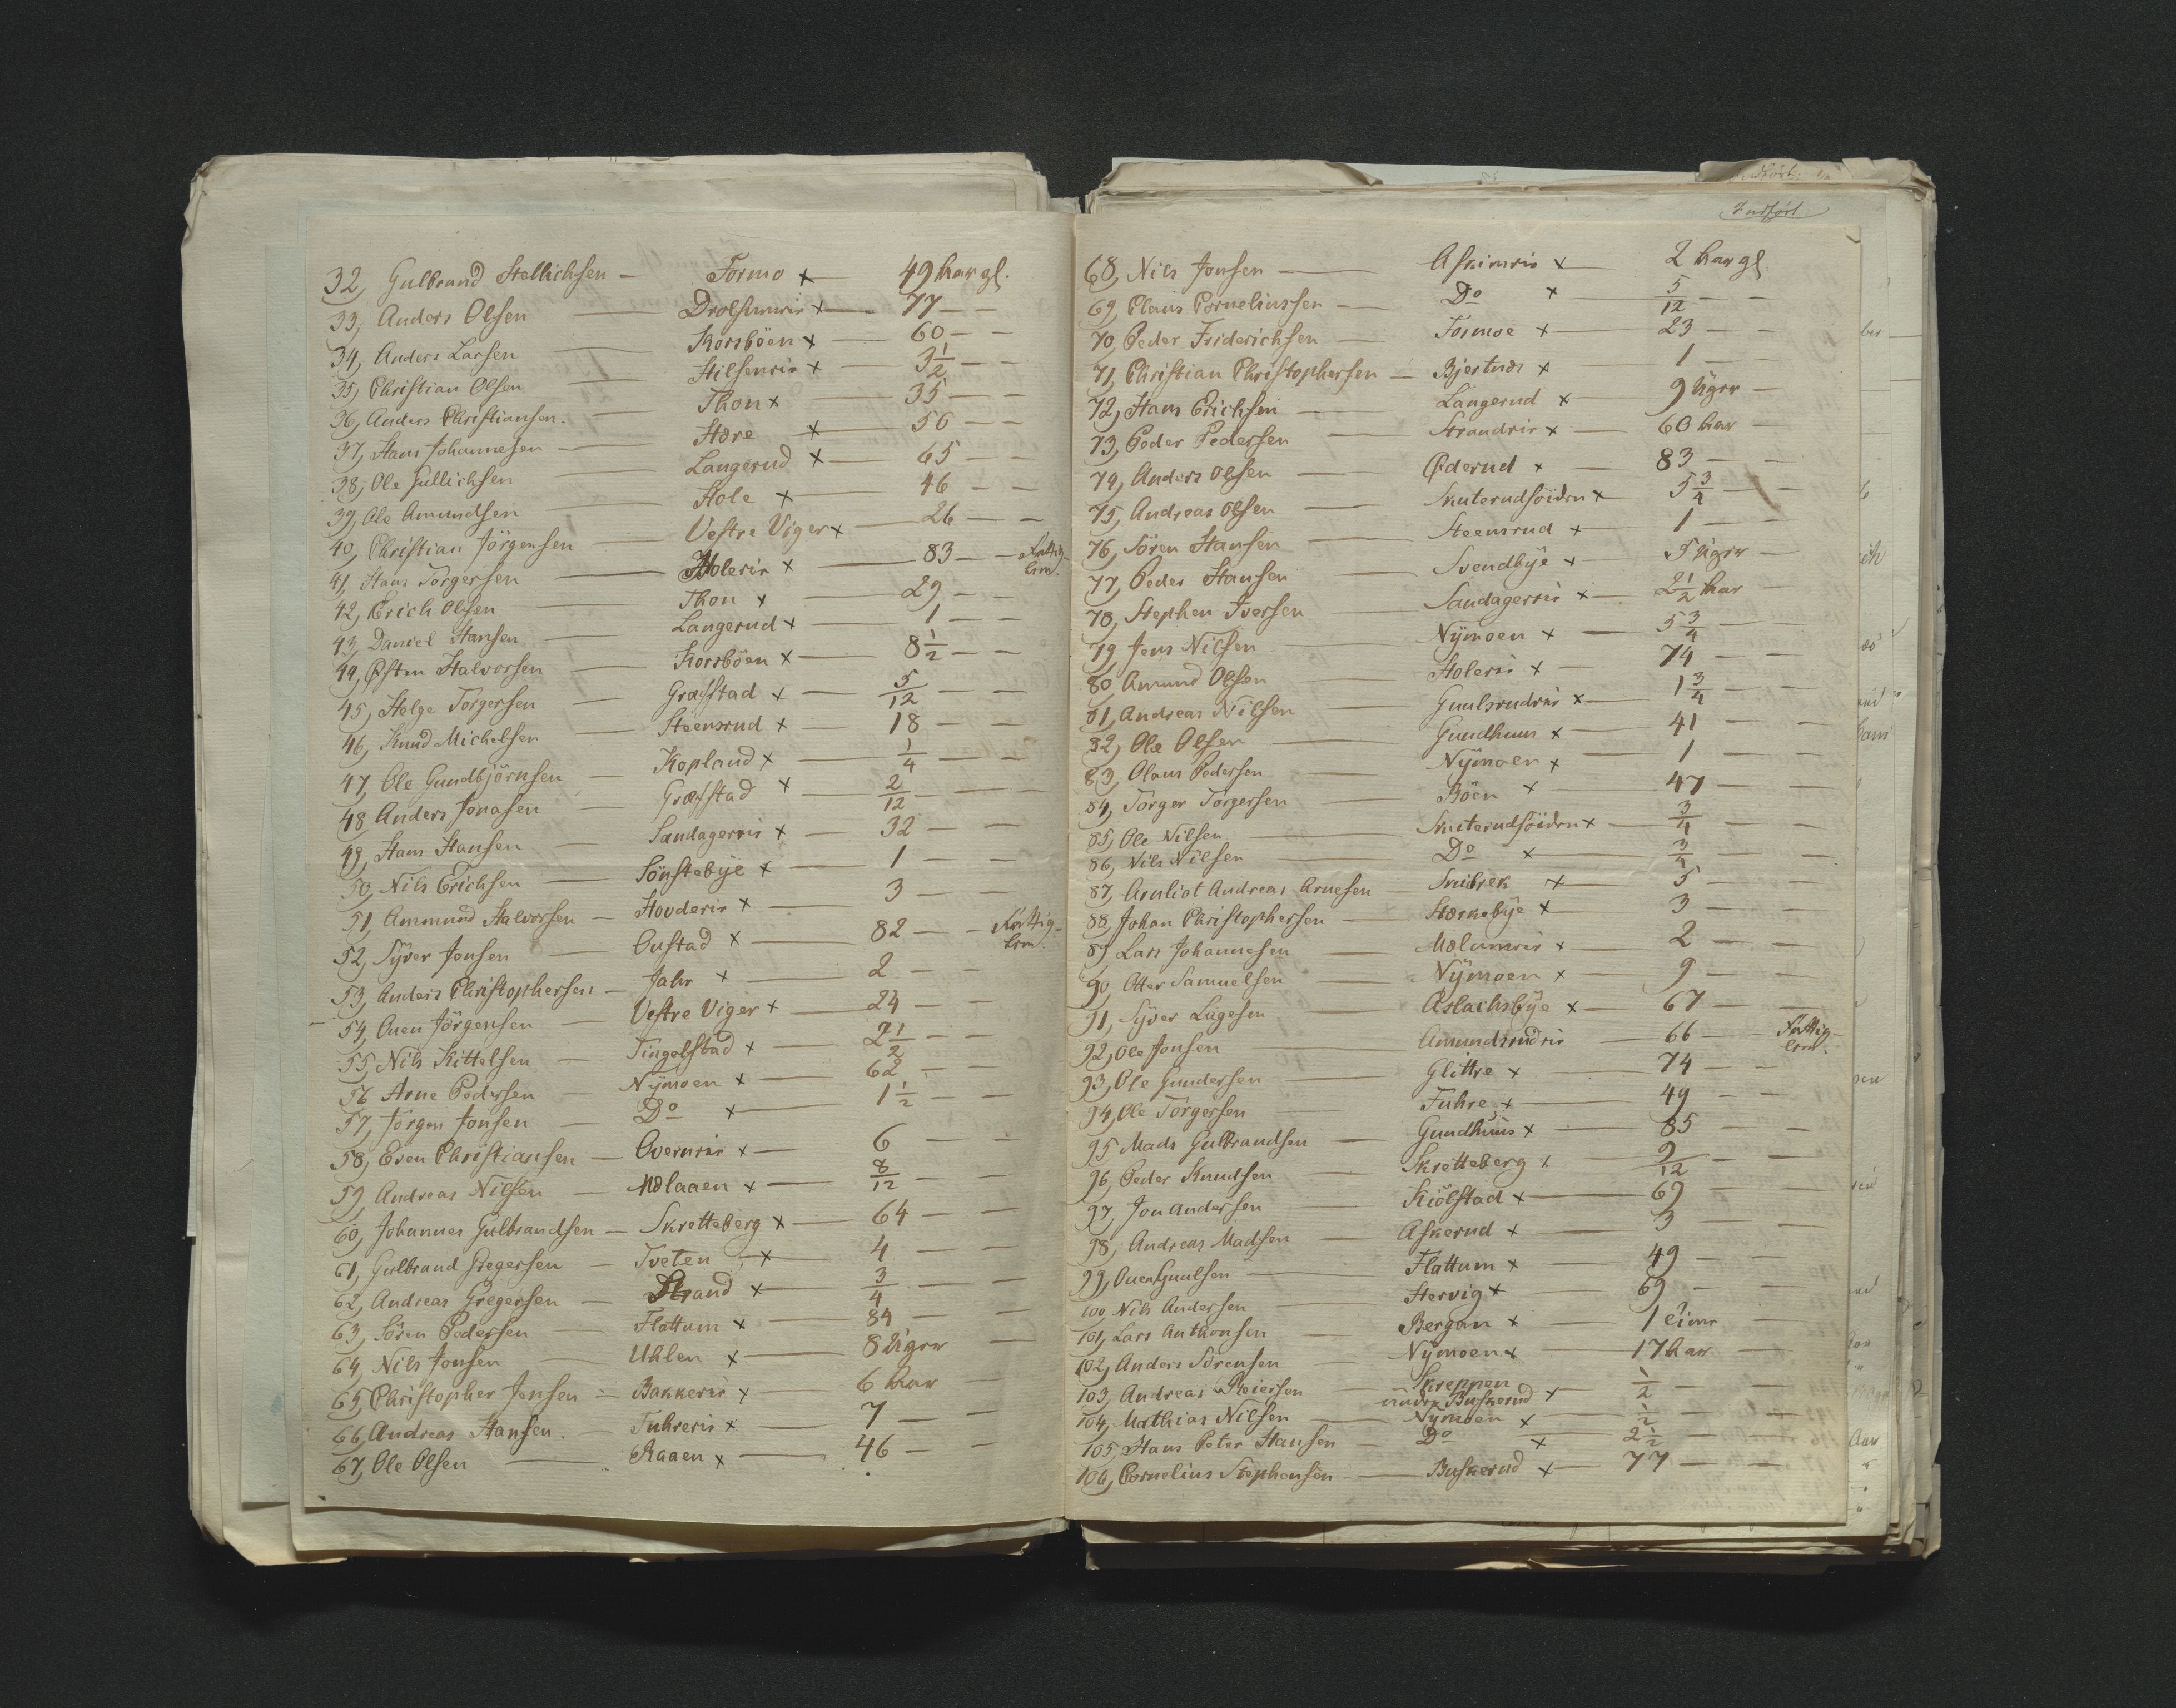 32, Gulbrand Hellichsen — Formo x — 49 Aar gl.
33, Anders Olsen — Drolsumeie x — 77 — —
34, Anders Larsen — Korsböen x — 60 — —
35, Christian Olsen — Hilseneie x — 3 1/2 — —
36, Anders Christiansen. — Thon x — 35 — —
37, Hans Johannesen — Hære x — 56 — —
38, Ole Gullichsen — Langerud x — 65 — —
39, Ole Amundsen — Hole x — 46 — —
40, Christian Jörgensen — Vestre Viger x — 26 — —
41, Hans Torgersen — Holeeie x — 83 — — Fattig-
lem.
42, Erich Olsen — Thon x — 29 — —
43, Daniel Hansen — Langerud x — 1 — —
44, Østen Halvorsen — Korsböen x — 8 1/2 — —
45, Helge Torgersen — Græsstad x — 5/12 — —
46, Knud Michelsen — Steensrud x — 18 — —
47, Ole Gundbjörnsen — Kopland x — 1/4 — —
48, Anders Jonasen — Græsstad x — 2/12 — —
49, Hans Hansen — Sandagereie x — 32 — —
50, Nils Erichsen — Sönstebÿe x — 1 — —
51, Ammund Halvorsen — Hovdeeie x — 3 — —
52, Sÿver Jonsen — Oustad x — 82 — — Fattig-
lem.
53, Anders Christophersen — Jahr x — 2 — —
54, Ouen Jörgensen — Vestre Viger x — 24 — —
55, Nils Kittelsen — Tingelstad x — 2 1/2 — —
56 Arne Pedersen — Nÿmoen x — 62 — —
57, Jörgen Jonsen — Do x — 1 1/2 — —
58, Even Christiansen — Overneie x — 6 — —
59, Andreas Nilsen — Mælaaen x — 8/12 — —
60, Johannes Gulbrandsen — Skretteberg x — 64 — —
61, Gulbrand Gregersen — Tveten x — 4 — —
62, Andreas Gregersen — Strand x — 3/4 — —
63, Sören Pedersen — Flattum x — 84 — —
64, Nils Jonsen — Uhlen x — 8 Uger —
65, Christopher Jensen — Bakkeeie x — 6 Aar —
66, Andreas Hansen. — Fuhreeie x — 7 — —
67, Ole Olsen — Raaen x — 46 — —
Indført
68, Nils Jonsen — Askimeie x — 2 Aar gl.
69, Claus Corneliussen — Do x — 5/12 — —
70, Peder Friderichsen — Formoe x — 23 — —
71, Christian Christophersen — Bjertnæs x — 1 — —
72, Hans Erichsen — Langerud x — 9 Uger —
73, Peder Pedersen — Strandeie x — 60 Aar —
74, Anders Olsen — Øderud x — 83 — —
75, Andreas Olsen — Skuterudföiden x — 5 3/4 — —
76, Sören Hansen — Steensrud x — 1 — —
77, Peder Hansen — Svendbÿe x — 5 Uger —
78, Stephen Iversen — Sandagereie x — 2 1/2 Aar —
79 Jens Nilsen — Nÿmoen x — 5 3/4 — —
80 Amund Olsen — Holeeie x — 74 — —
81, Andreas Nilsen — Guulsrudeie x — 1 3/4 — —
82, Ole Olsen — Gundhuus x — 41 — —
83, Olaus Pedersen — Nÿmoen x — 1 — —
84, Torger Torgersen — Böen x — 47 — —
85, Ole Nilsen — Skuterudföiden x — 3/4 — —
86, Nils Nilsen — Do x — 3/4 — —
87, Arnliot Andreas Arnesen — Snibrek x — 5 — —
88, Johan Christophersen — Stærkebÿe x — 3 — —
89 Lars Johannesen — Mælumeie x — 2 — —
90, Otter Samuelsen — Nÿmoen x — 9 — —
91, Sÿver Lagesen — Aslachsbÿe x — 67 — —
92, Ole Jonsen — Amundsrudeie — 66 — — Fattig-
lem.
93, Ole Gundersen — Glittre x — 74 — —
94, Ole Torgersen — Fuhre x — 49 — —
95 Mads Gulbrandsen — Gundhuus x — 85 — —
96, Peder Knudsen — Skretteberg x — 9/12 — —
97, Jon Andersen — Kiölstad x — 69 — —
98, Andreas Madsen — Askerud x — 3 — —
99, Ouen Guulsen — Flattum x — 49 — —
100 Nils Andersen — Hervig x — 69 — —
101, Lars Anthonsen — Bergan x — 1 Time —
102, Anders Sörensen — Nÿmoen x — 17 Aar —
103, Andreas Reiersen — Skreppen
under Buskerud x — 1/2 — —
104, Mathias Nilsen — Nÿmoen x — 1/2 — —
105, Hans Peter Hansen — Do x — 2 1/2 — —
106, Cornelius Stephensen — Buskerud x — 77 — —